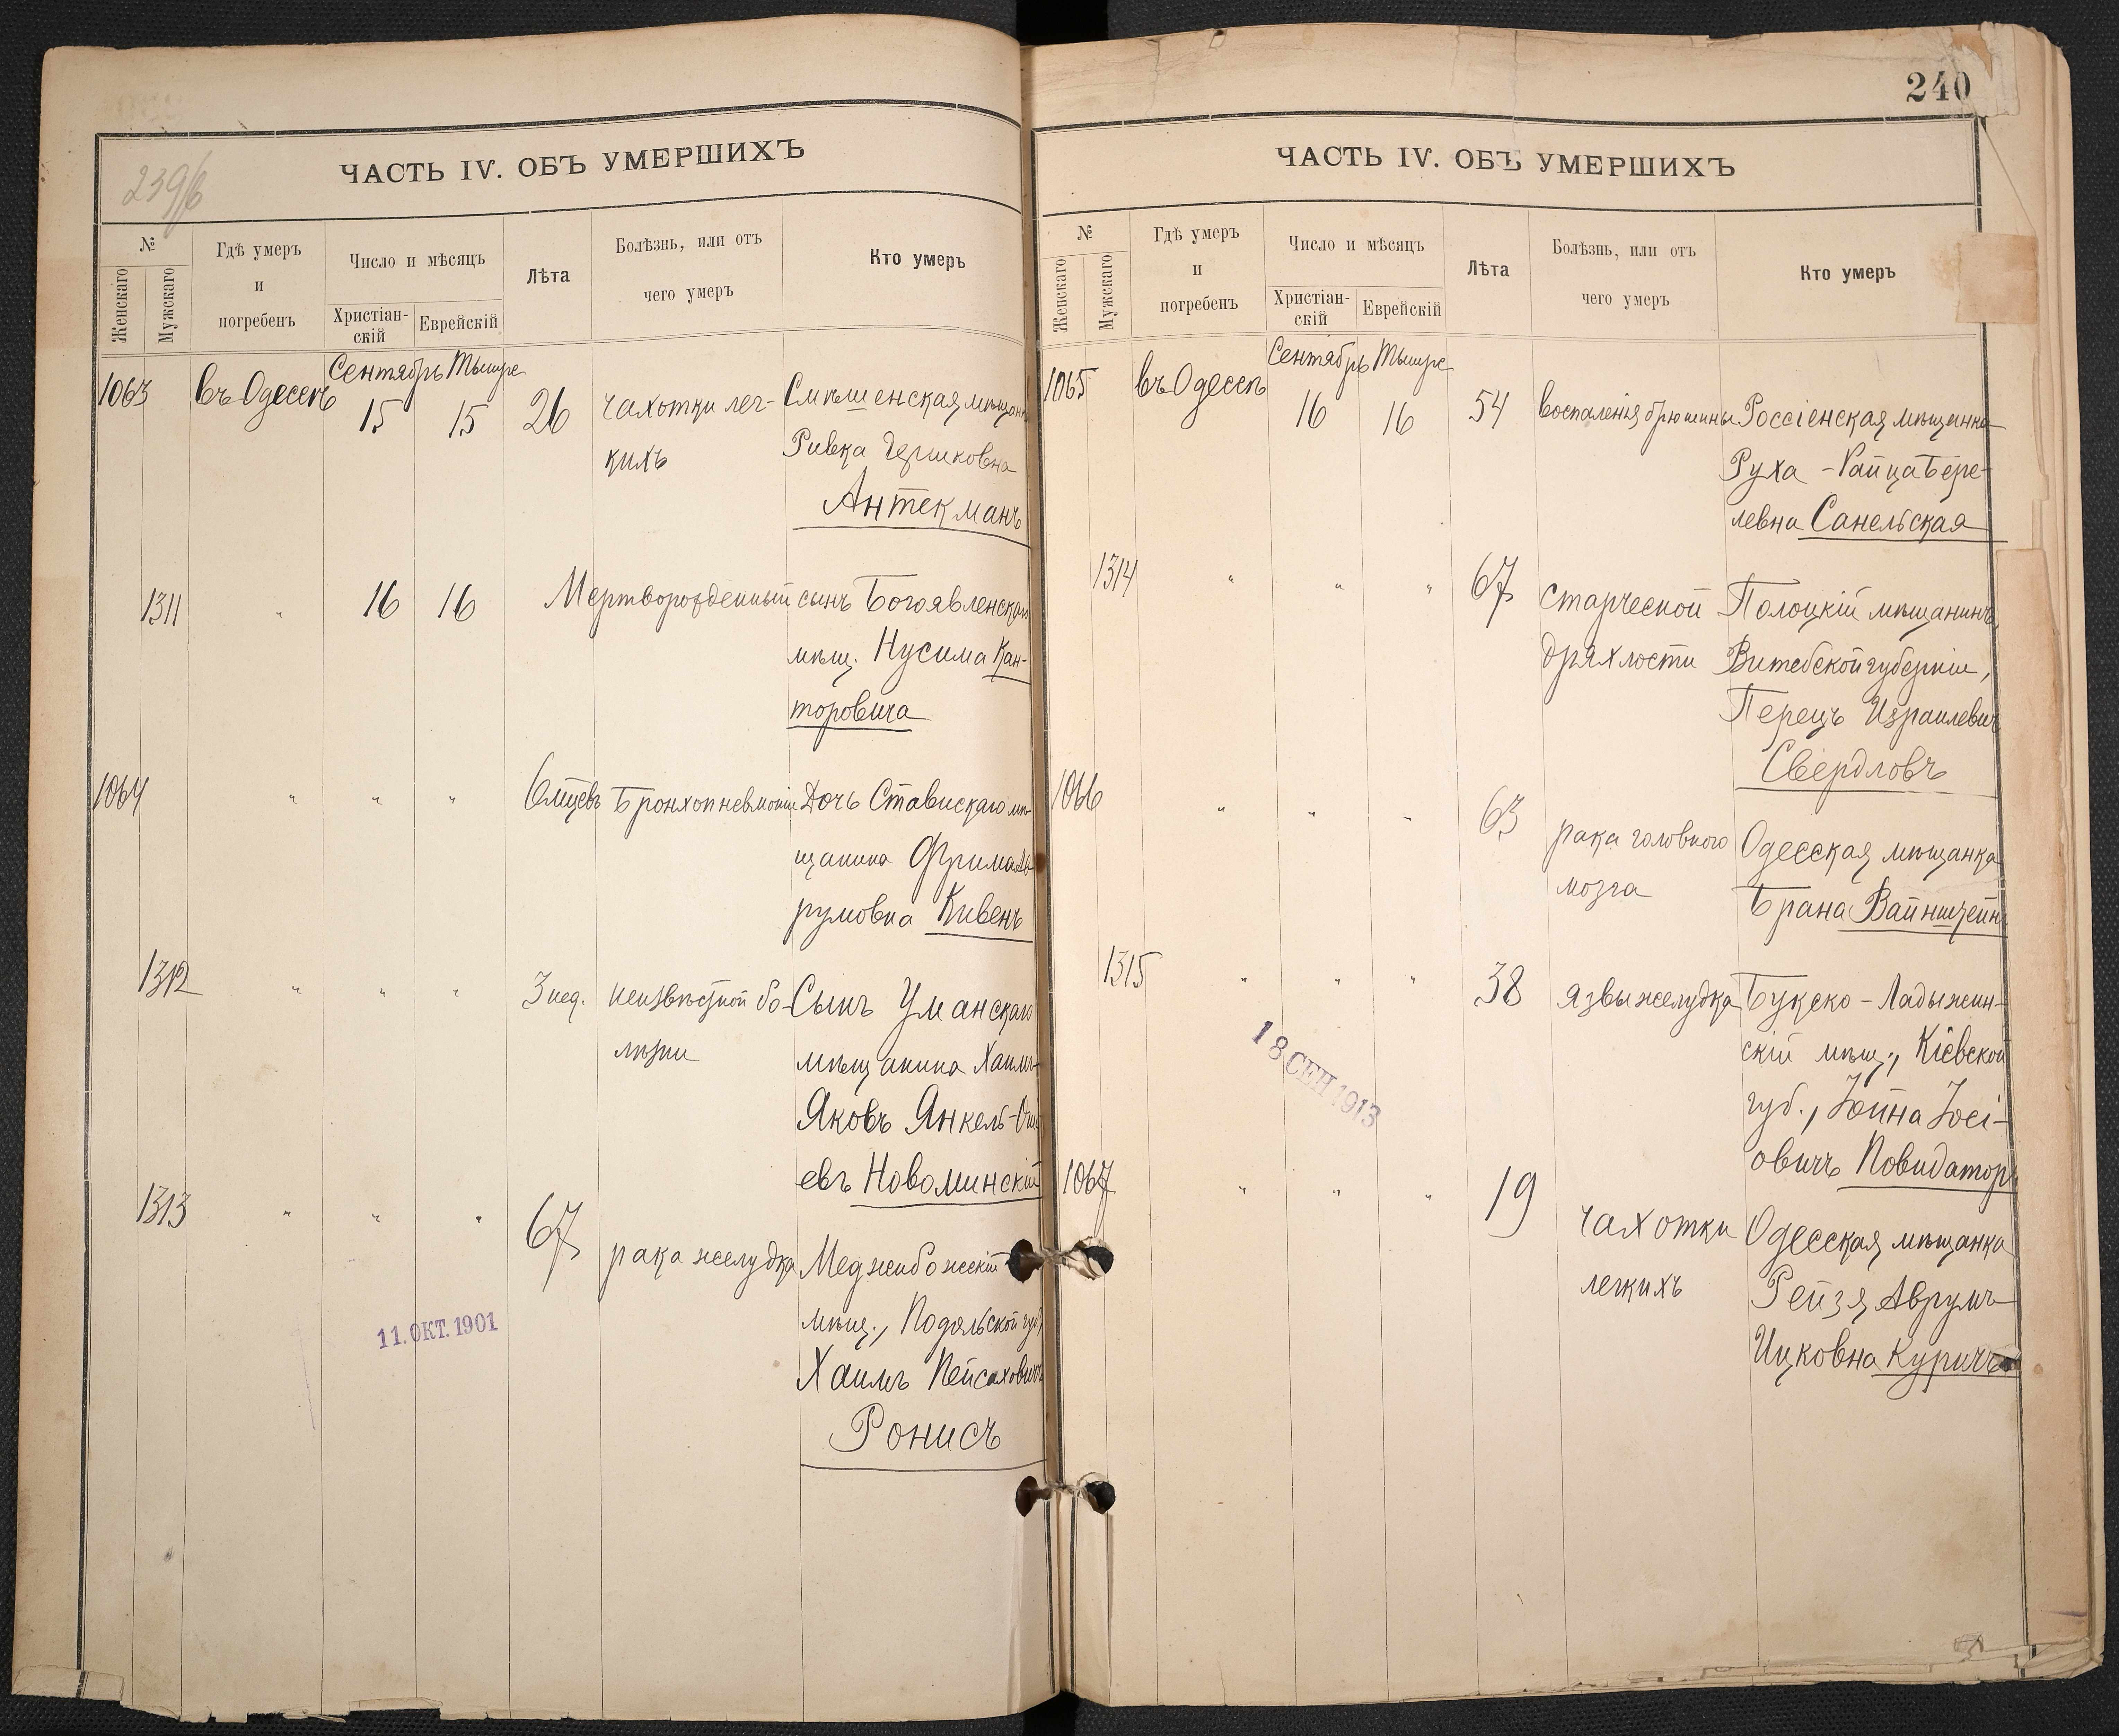 239/б
ЧАСТЬ IV. ОБЪ УМЕРШИХЪ
№
Женскаго
Мужскаго
Гдѣ умеръ
и
погребенъ
Число и мѣсяцъ
Христіан-
скій
Еврейскій
Лѣта
Болѣзнь, или отъ
чего умеръ
Кто умеръ
Сентябрь Тышре
1063 въ Одессѣ 15 15 26 чахотки лег- Смѣшенская мѣщан
кихъ Ривка Гершковна
Антекманъ
1311 " 16 16 Мертворожденный сынъ Богоявленскаго
мѣщ. Нусима Кан-
торовича
1064 " " " 6 мцевъ Бронхопневмоніи Дочь Ставискаго мѣ-
щанина Фрима Аб-
румовна Кивенъ
1312 " " " 3 нед. неизвѣстной бо- Сынъ Уманскаго
лѣзни мѣщанина Хаимъ-
Яковъ Янкель-
евъ Новоминскій
1313 " " " 67 рака желудка Меджибожскій
мѣщ., Подольской губ.,
Хаимъ Пейсаховичъ
Ронисъ
11.ОКТ.1901
240
ЧАСТЬ IV. ОБЪ УМЕРШИХЪ
№
Женскаго
Мужскаго
Гдѣ умеръ
и
погребенъ
Число и мѣсяцъ
Христіан-
скій
Еврейскій
Лѣта
Болѣзнь, или отъ
чего умеръ
Кто умеръ
Сентябрь Тышре
1065 въ Одессѣ 16 16 54 воспаленія брюшины Россіенская мѣщанка
Руха-Райца Бере-
левна Санельская
1314 " " " 67 старческой Полоцкій мѣщанинъ,
дряхлости Витебской губерніи,
Перецъ Израилевичъ
Свердловъ
1066 " " " 63 рака головного Одесская мѣщанка
мозга Брана Вайнштейнъ
1315 " " " 38 язвы желудка Букско-Ладыжин-
скій мѣщ., Кіевской
губ., Іойна Іосі-
овичъ Повидаторъ
18 СЕН 1913
1067 " " " 19 чахотки Одесская мѣщанка
легкихъ Рейзя Аврумъ-
Ицковна Куричъ